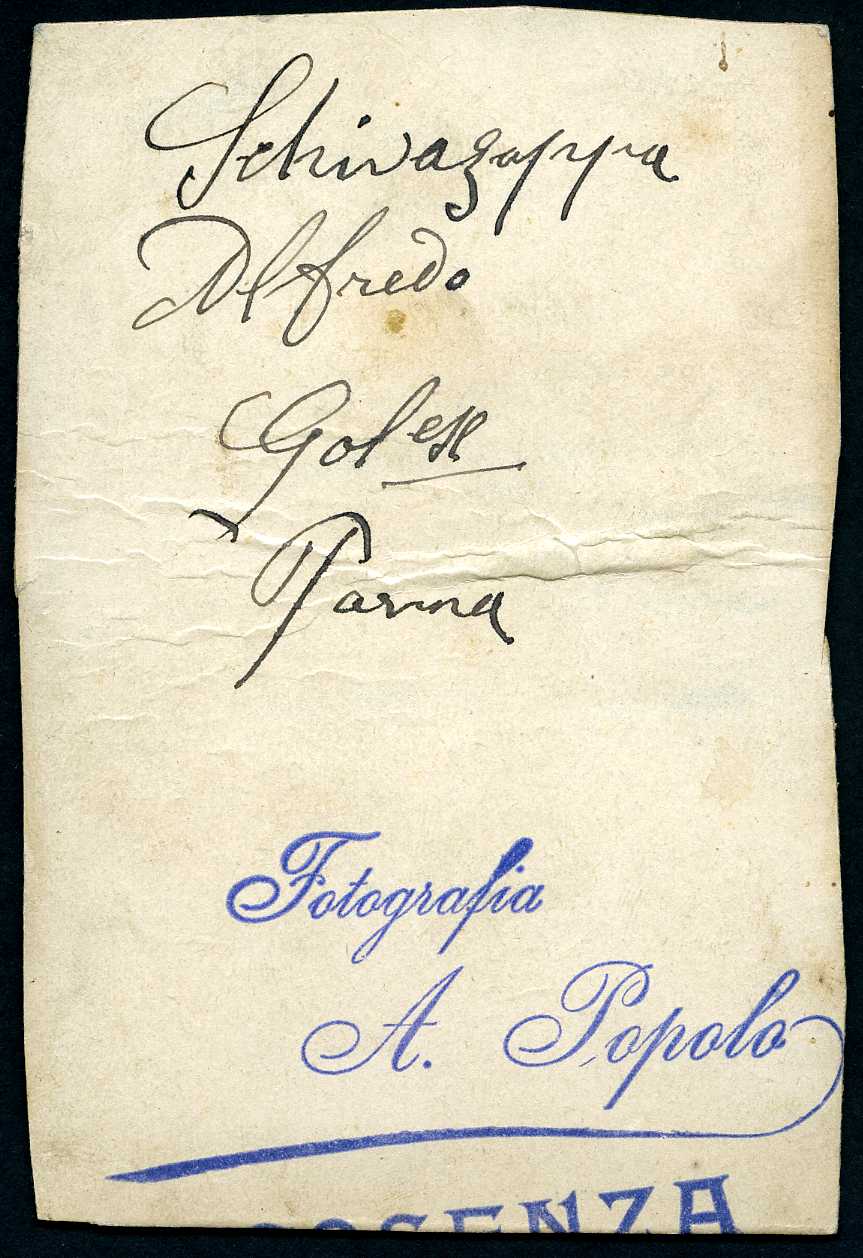 Schivazappa
Alfredo
Golese
Parma
Fotografia
A. Popolo
COSENZA